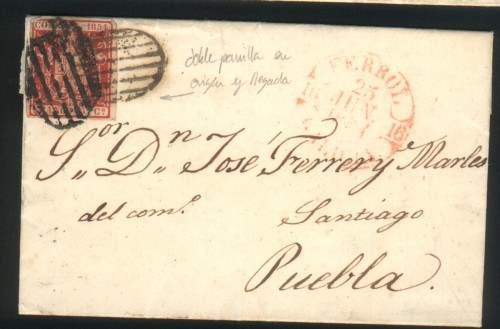 CO 1854
Cs
doble parrilla en
origen y llegada
FERROL
25
JUN
16
Sor
S.. Dn José Ferrer y Marles
del comº.
Santiago
Puebla.